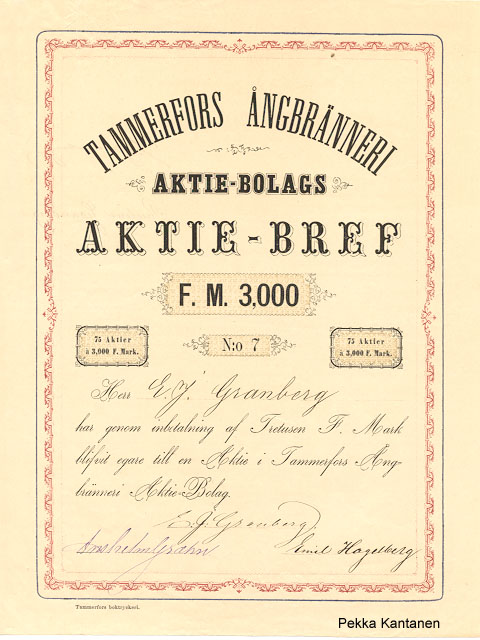 TAMMERFORS ÅNGBRÄNNERI
AKTIE-BOLAGS
AKTIE-BREF
F. M. 3,000
75 Aktier
à 3,000 F. Mark.
N:o 7
75 Aktier
à 3,000 F. Mark.
Herr E. J. Granberg
har genom inbetalning af Tretusen F. Mark
blifvit egare till en Aktie i Tammerfors Ång-
bränneri Aktie-Bolag.
E. J. Granberg.
Grahn
Emil Hagelberg
Tammerfors boktryckeri.
Pekka Kantanen